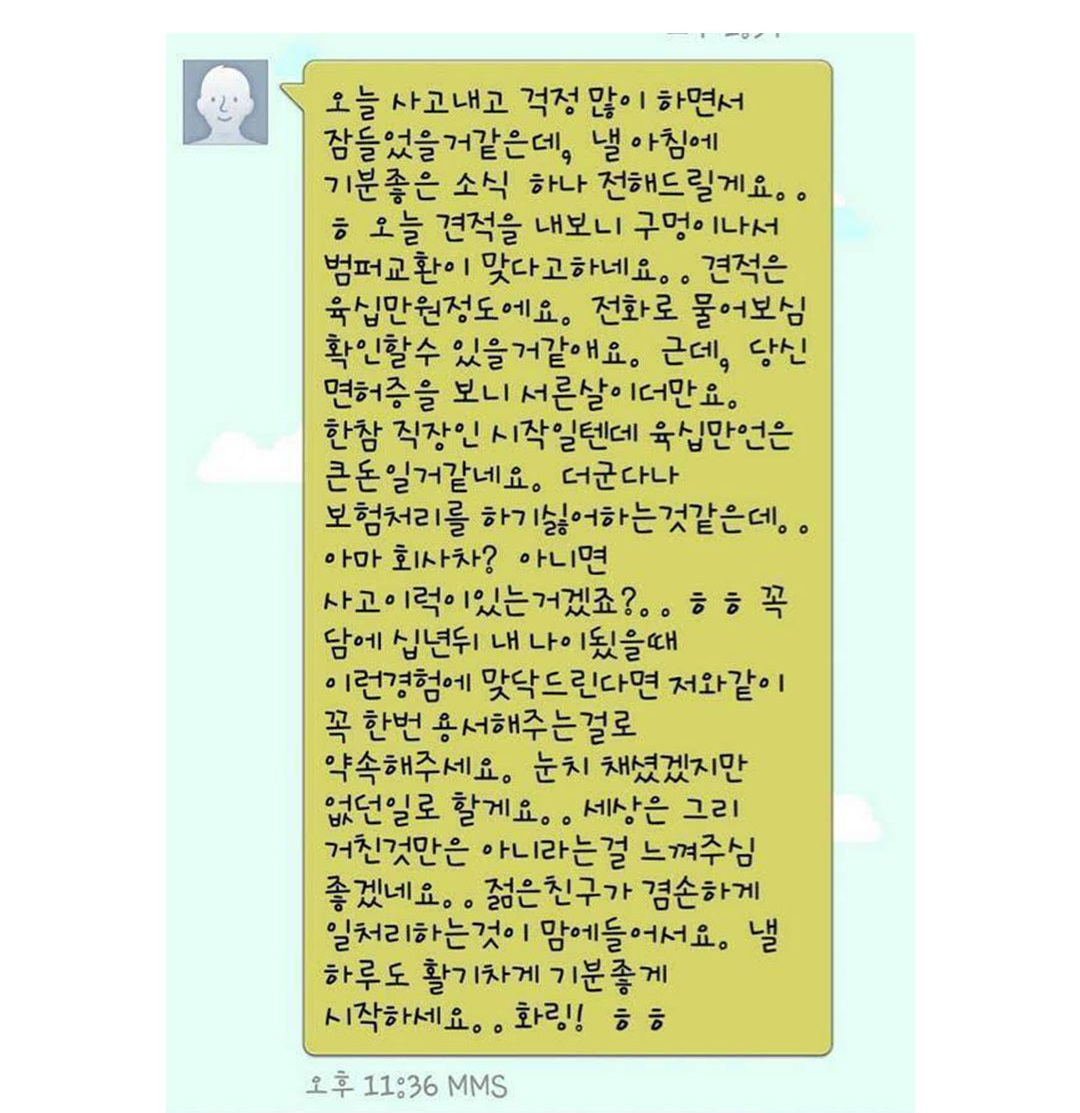 오늘 사고내고 걱정 많이 하면서
잠들었을거같은데, 낼 아침에
기분좋은 소식 하나 전해드릴게요..
ㅎ 오늘 견적을 내보니 구멍이나서
범퍼교환이 맞다고하네요.. 견적은
육십만원정도에요. 전화로 물어보심
확인할수 있을거같애요. 근데, 당신
면허증을 보니 서른살이더만요.
한참 직장인 시작일텐데 육십만언은
큰돈일거같네요. 더군다나
보험처리를 하기싫어하는것같은데..
아마 회사차? 아니면
사고이럭이있는거겠죠?.. ㅎ ㅎ 꼭
담에 십년뒤 내 나이됬을때
이런경험에 맞닥드린다면 저와같이
꼭 한번 용서해주는걸로
약속해주세요. 눈치 채셨겠지만
없던일로 할게요.. 세상은 그리
거친것만은 아니라는걸 느껴주심
좋겠네요.. 젊은친구가 겸손하게
일처리하는것이 맘에들어서요. 낼
하루도 활기차게 기분좋게
시작하세요.. 화링!! ㅎ ㅎ
오후 11:36 MMS